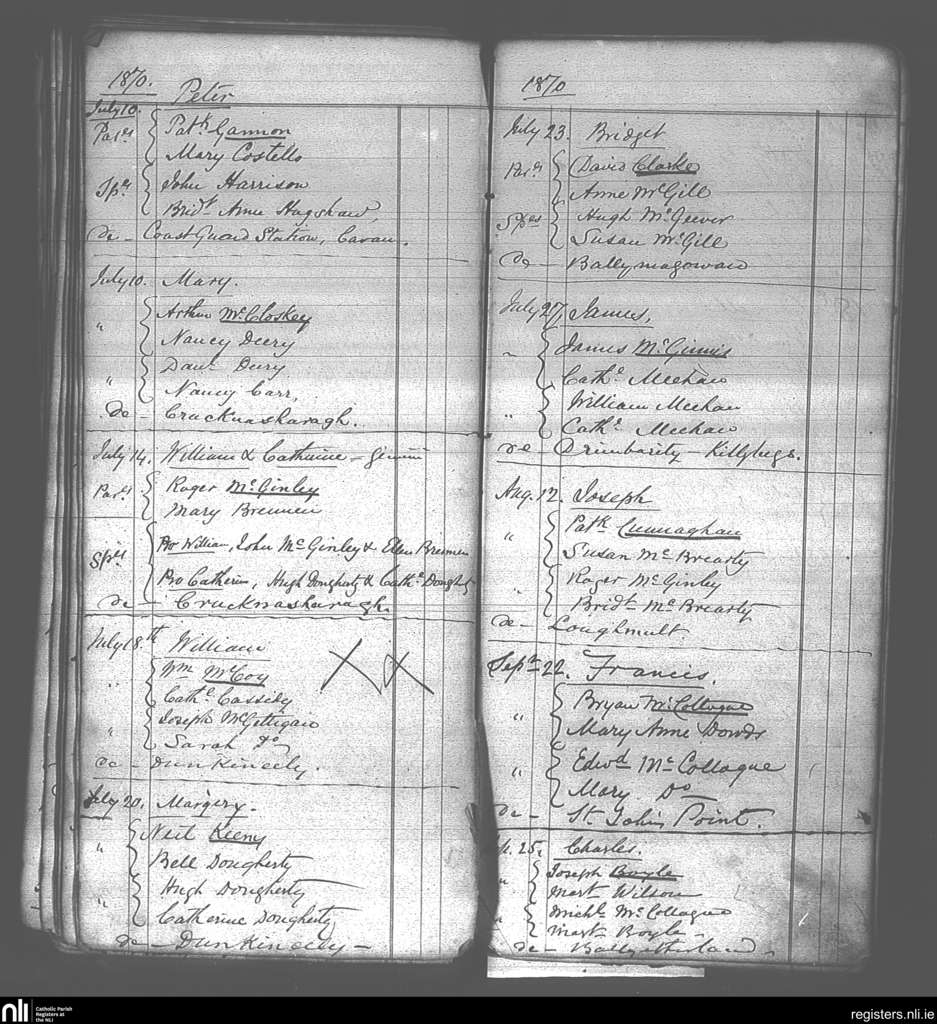 1870.
Peter
July 10.
Par.ts Pat.k Gannon
Mary Costello
Sp.rs John Harrison
Brid.t Anne Hagshaw
de - Coast Guard Station, Cavan.
July 10. Mary.
" Arthur McCloskey
Nancy Deery
" Dan.l Deery
Nancy Carr,
de - Crucknasharagh.
July 14. William & Catherine - gemini
Par.ts Roger McGinley
Mary Brennen
Sp.rs Pro William, John McGinley & Ellen Brennen
Pro Catherin, Hugh Dougherty & Cath.e Dougherty
de - Crucknasharagh.
July 18th William
" Wm McCoy
Cath.e Cassidy
" Joseph McGettigan
Sarah Do
de - Dunkineely.
July 20. Margery.
" Neil Keeny
Bell Dougherty
" Hugh Dougherty
Catherine Dougherty
de - Dunkineely -
1870
July 23. Bridget
Par.ts David Clarke
Anne McGill
Sp.rs Hugh McGeever
Susan McGill
de - Ballymagowan
July 27, James,
" James McGinnis
Cath.e Meehan
" William Meehan
Cath.e Meehan
de - Drimbarity - Killybegs.
Aug. 12. Joseph
" Pat.k Cunnaghan
Susan McBrearty
" Roger McGinley
Brid.t McBrearty
de - Loughmult
Sept. 22. Francis.
" Bryan McCollogue
Mary Anne Dowds
" Edw.d McCollogue
Mary Do
de - St. John's Point.
25, Charles.
" Joseph Boyle
Mar.t Wilson
" Mich.l McCollogue
Mar.t Boyle -
de - Ballysutherland
nli
Catholic Parish
Registers at
the NLI
registers.nli.ie